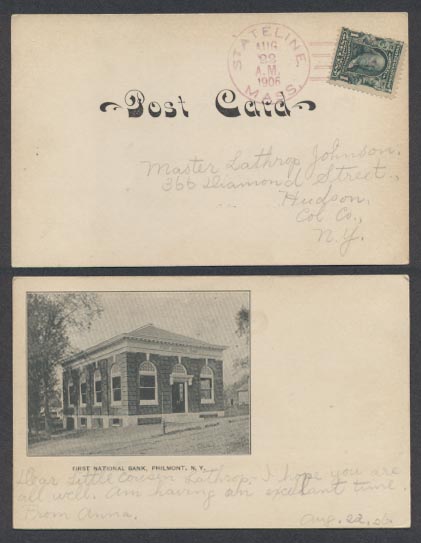 STATELINE,
AUG
22
A.M.
1906
MASS.
Post Card
Master Lathrop Johnson.
366 Diamond Street.,
Hudson,
Col Co.,
N.Y.
FIRST NATIONAL BANK, PHILMONT, N. Y.
Dear Little Cousin Lathrop. I hope you are
all well. Am having an excellant time.
From Anna.
Aug. 22, 06